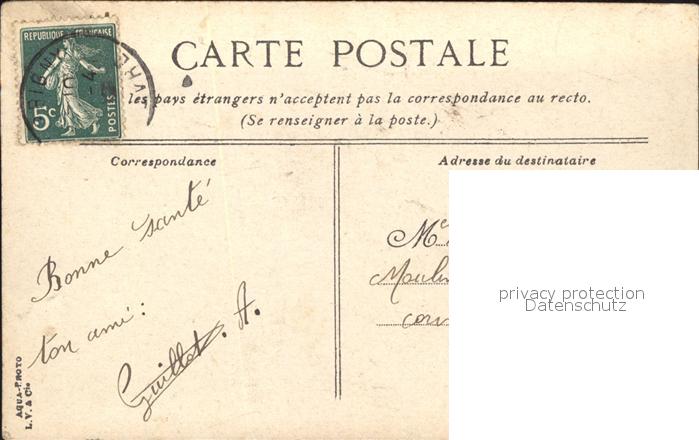 RÉPUBLIQUE FRANÇAISE
POSTES
5c
CARTE POSTALE
les pays étrangers n'acceptent pas la correspondance au recto.
(Se renseigner à la poste.)
Correspondance
Adresse du destinataire
Bonne santé
ton ami:
Guillot. A.
AQUA-PHOTO
L.V. & Cie
Me
Moulin
privacy protection
Datenschutz